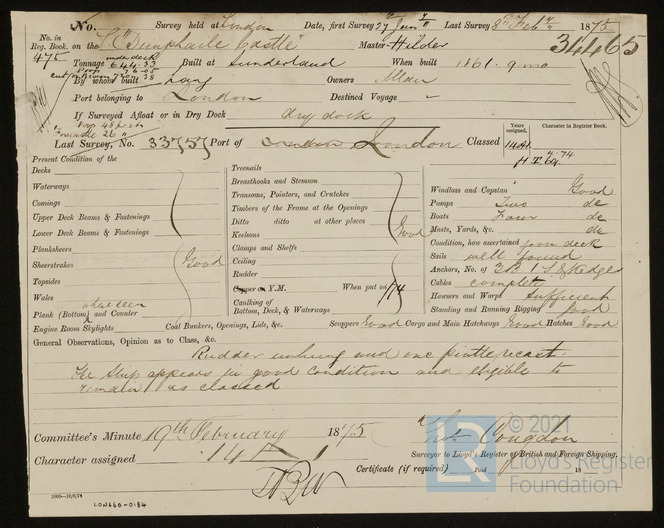 No. Survey held at London Date, first Survey 27 Jany Last Survey 8th Feb 1875
No. in Reg. Book. 475 on the "Dunphaile Castle" Master Hilder 34465
under deck
Tonnage 644.33 Built at Sunderland When built 1861. 9mo
By whom built Laing Owners Allan
Port belonging to London Destined Voyage "
If Surveyed Afloat or in Dry Dock dry dock
Last Survey, No. 33757 Port of London London Classed
Years assigned. Character in Register Book.
14A1. 4.74
Present Condition of the
Decks
Waterways
Comings
Upper Deck Beams & Fastenings
Lower Deck Beams & Fastenings
Planksheers
Sheerstrakes Good
Topsides
Wales
where seen
Plank (Bottom) and Counter
Engine Room Skylights
Treenails
Breasthooks and Stemson
Transoms, Pointers, and Crutches
Timbers of the Frame at the Openings
Ditto ditto at other places
Keelsons Good
Clamps and Shelfs
Ceiling
Rudder
Copper or Y.M. When put on /74
Caulking of Bottom, Deck, & Waterways
Coal Bunkers, Openings, Lids, &c.
Windlass and Capstan Good
Pumps Two do
Boats Four do
Masts, Yards, &c. do
Condition, how ascertained from deck
Sails well found
Anchors, No. of 3B 1 S & Kedges
Cables complete
Hawsers and Warps Sufficient
Standing and Running Rigging good
Scuppers Good Cargo and Main Hatchways Good Hatches Good
General Observations, Opinion as to Class, &c.
Rudder unhung and one pintle recast.
The Ship appears in good condition and eligible to
remain as classed.
Committee's Minute 19th February 1875
Character assigned 14A1
Congdon
Surveyor to Lloyd's Register of British and Foreign Shipping.
Certificate (if required) Paid 18
LON660-0184
© 2021
Lloyd's Register
Foundation
LR